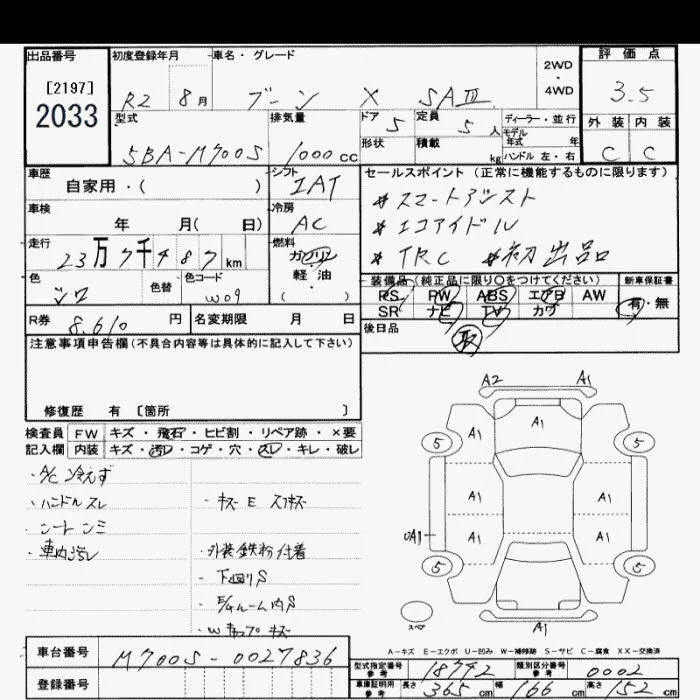 出品番号
[2197]
2033
初度登録年月
R2 8月
車名・グレード
ブーン X SAⅢ
2WD
・
4WD
評価点
3.5
外装 内装
C C
型式
5BA-M700S
排気量
1000cc
ドア 5
形状
定員 5人
積載 kg
ディーラー・並行
モデル年式 年
ハンドル 左・右
車歴
自家用・( )
シフト
IAT
車検
年 月( 日)
冷房
AC
走行
23万7千487km
燃料
ガソリン
軽・油
( )
色
シロ
色替
色コード
W09
セールスポイント (正常に機能するものに限ります)
#スマートアシスト
#エコアイドル
#TRC #初出品
装備品(純正品に限り○をつけてください)
新車保証書
PS PW ABS エアB AW
SR ナビ TV カワ
有・無
R券 8,610円
名変期限 月 日
後日品
取
注意事項申告欄(不具合内容等は具体的に記入して下さい)
修復歴 有 〔箇所 〕
検査員 FW キズ・飛石・ヒビ割・リペア跡・×要
記入欄 内装 キズ・汚レ・コゲ・穴・スレ・キレ・破レ
・A/C 冷えず
・ハンドルスレ
・シートシミ
・車内汚レ
・外装鉄粉付着
・下回りS
・E/Gルーム内S
A2 A1
5 A1 A1 5
A1 A1
0A1 A1 A1
5 5
スペア
A1
A-キズ E-エクボ U-凹み W-補修跡 S-サビ C-腐食 XX-交換済
車台番号
M700S-0027836
登録番号
型式指定番号 参考 18742
類別区分番号 参考 0002
車庫証明用 参考 長さ 365cm 幅 166cm 高さ 152cm